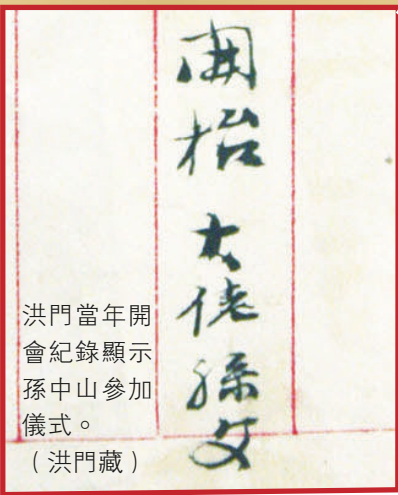 開枱 大佬孫文
洪門當年開
會紀錄顯示
孫中山參加
儀式。
（洪門藏）